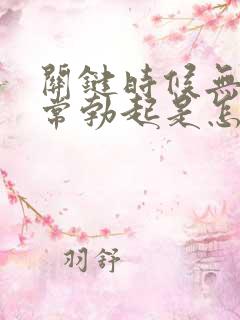 關鍵時候無
常勃起是怎
羽舒